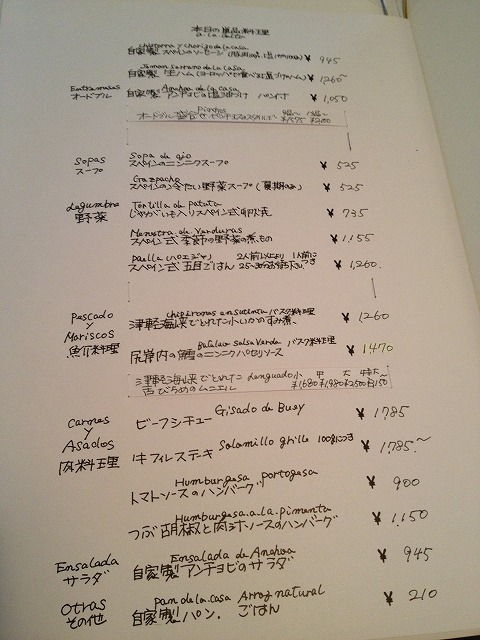 本日の単品料理
a la carta
chistorra y chorizo de la casa
自家製 スペインのソーセージ ¥945
Jamon serrano de la casa
自家製 生ハム ¥1,260~
Entremeses Anchoa de la casa
オードブル 自家製 アンチョビの塩漬け パン付 ¥1,050
Pinchos
オードブル盛合せ ¥1575 ¥2100
Sopas Sopa de ajo
スープ スペインのニンニクスープ ¥525
Gazpacho
スペインの冷たい野菜スープ(夏期のみ) ¥525
Legumbre Tortilla de patata
野菜 じゃがいも入りスペイン式卵焼 ¥735
Menestra de Verduras
スペイン式 季節の野菜の煮もの ¥1,155
Paella (パエジャ) 2人前以上より 1人前につき
スペイン式 五目ごはん ¥1,260
Pescado y Mariscos chipirones en su tinta バスク料理
魚介料理 津軽海峡でとれた小いかのすみ煮 ¥1260
Bacalao salsa Verde バスク料理
尻岸内の鱈のニンニクパセリソース ¥1470
津軽海峡でとれた Lenguado 小 中 大 特大~
舌びらめのムニエル ¥1680 ¥1980 ¥2500 ¥3150
Carnes y Asados Gisado de Buey
肉料理 ビーフシチュー ¥1,785
Solomillo grille 100gにつき
牛フィレステーキ ¥1,785~
Humburgesa portogesa
トマトソースのハンバーグ ¥900
Humburgesa.a.la.pimenta
つぶ胡椒と肉汁ソースのハンバーグ ¥1,150
Ensalada Ensalada de Anchoa
サラダ 自家製アンチョビのサラダ ¥945
Otras pan de la.casa Arroz natural
その他 自家製パン. ごはん ¥210